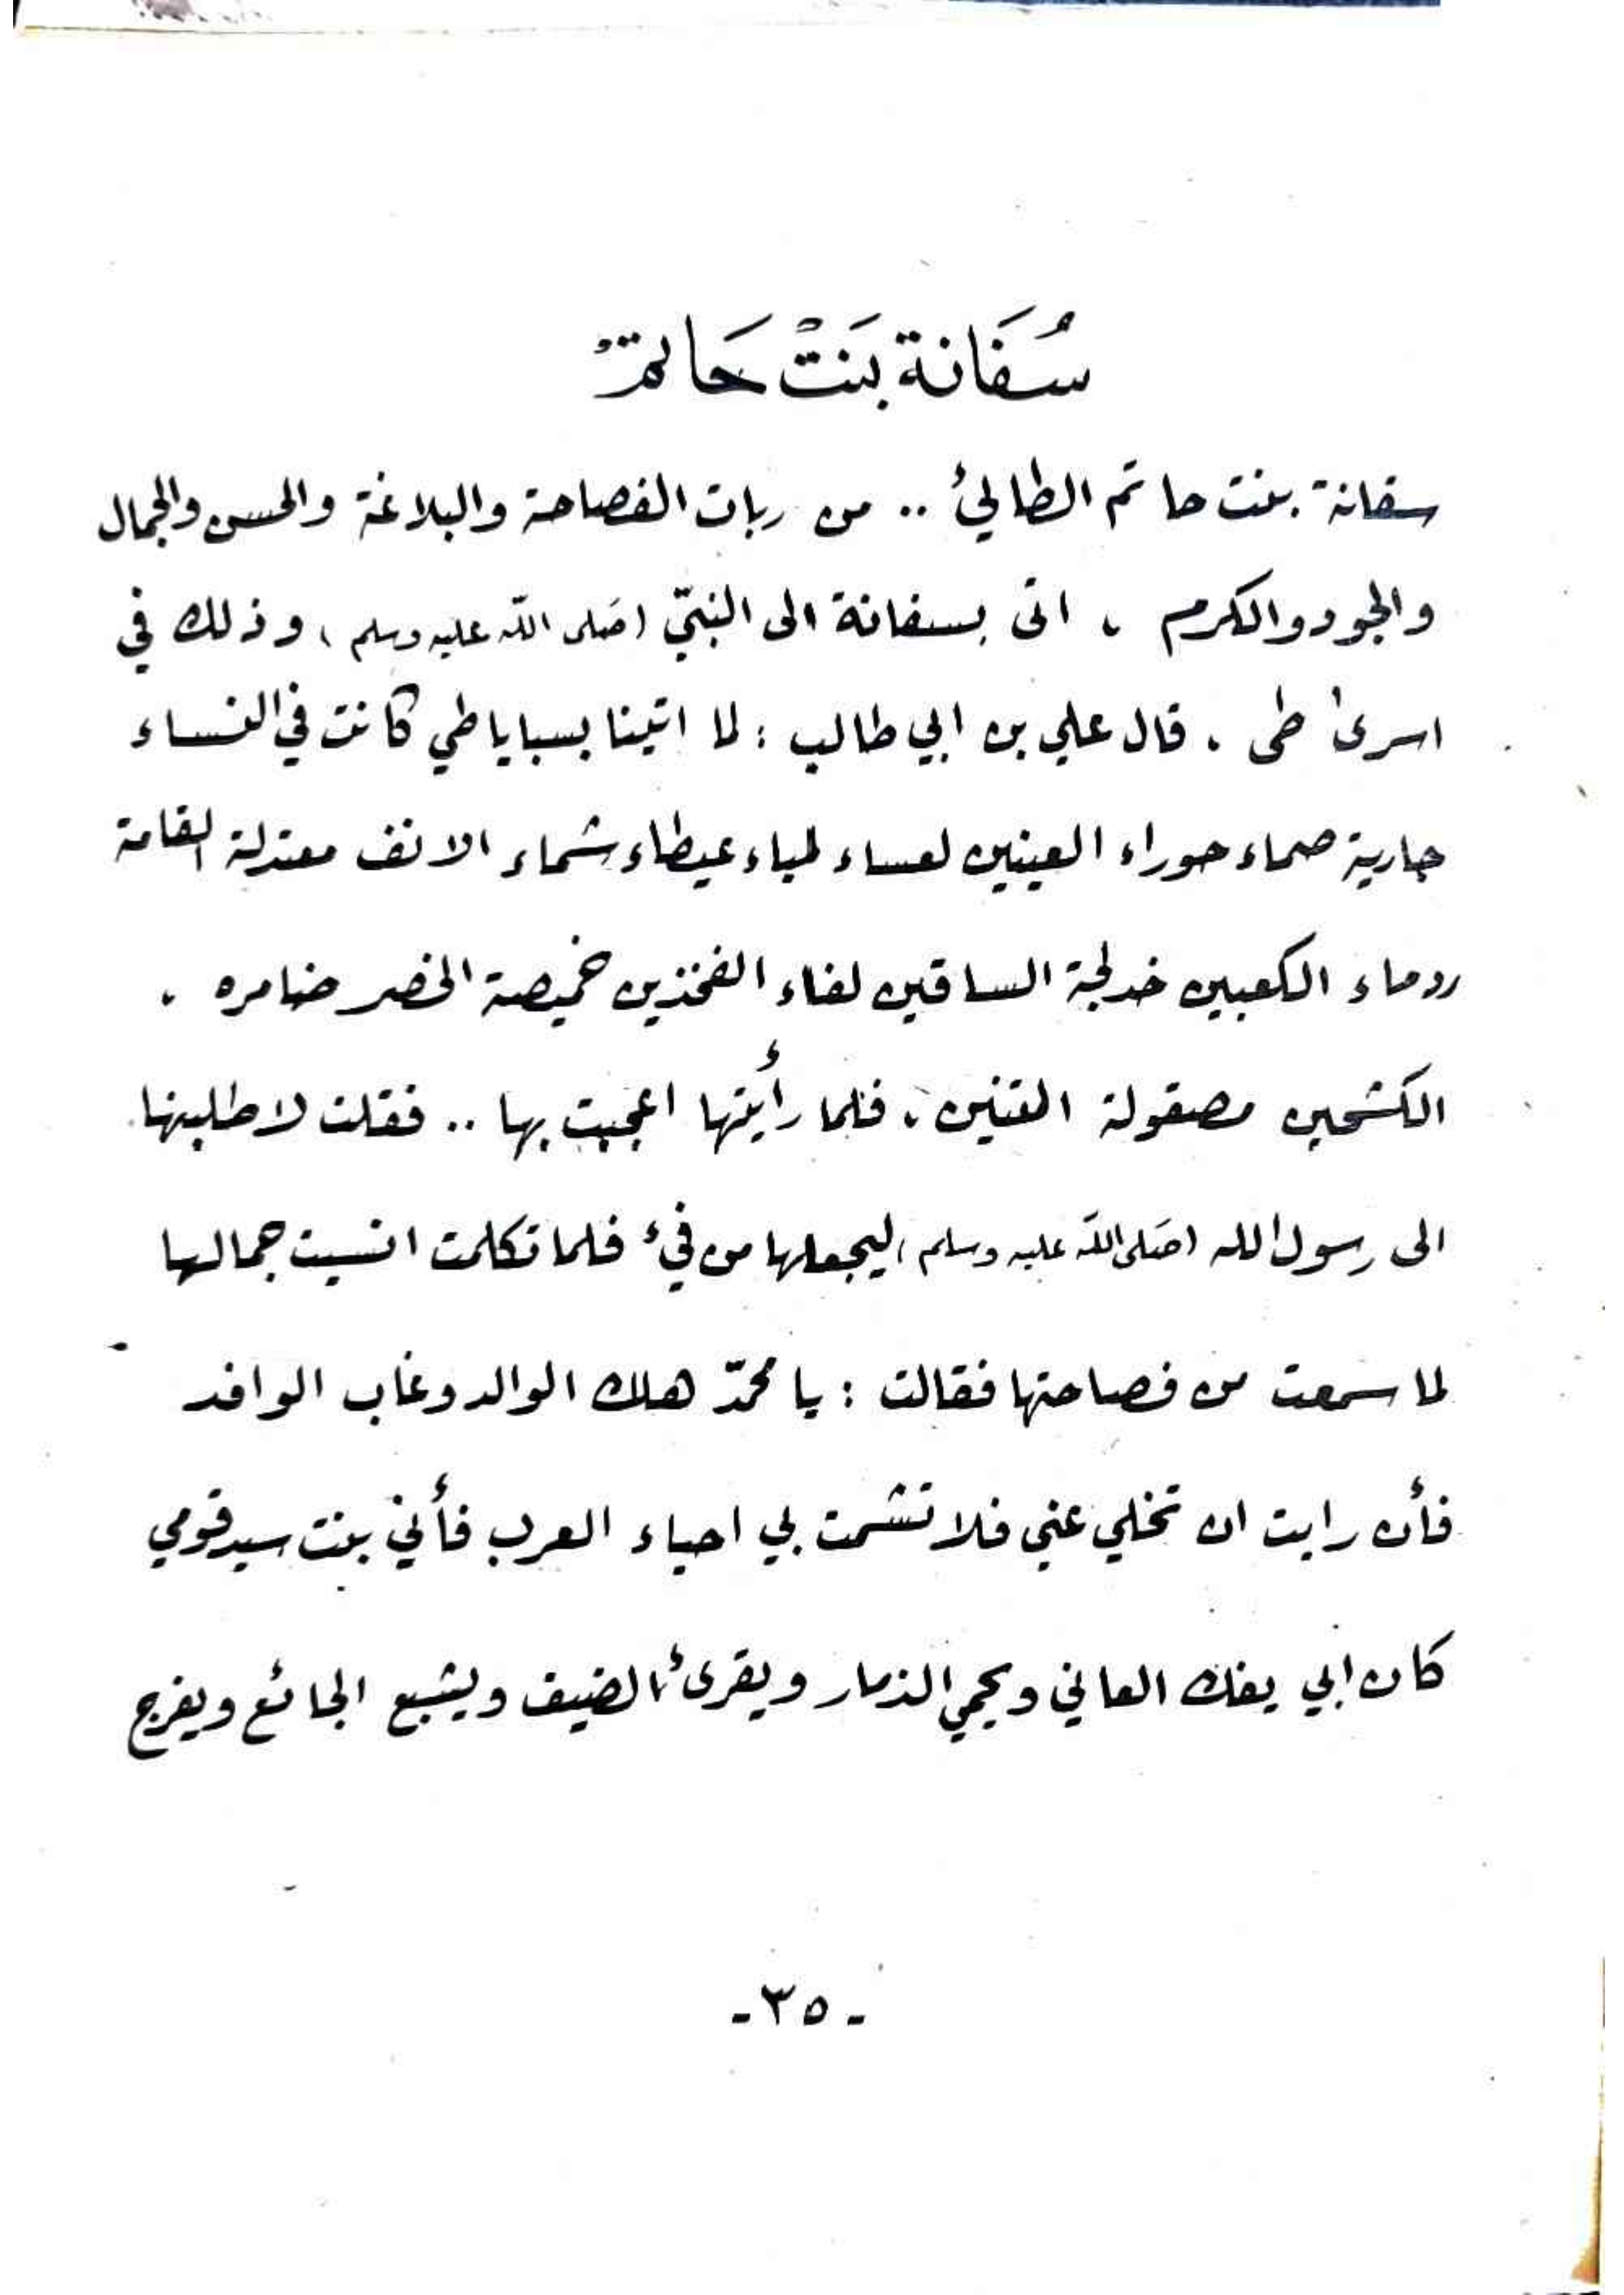 سُفَانة بَنتْ حَاتمْ
سفانة بنت حاتم الطائيُ .. من ربات الفصاحة والبلاغة والحسن والجمال
والجود والكرم ، اتى بسفانة الى النبيّ (صَلى اللّه عليه وسلم) وذلك في
اسرىٰ طى . قال علي بن ابي طالب : لما اتينا بسبايا طي كانت في النساء
جارية حماء حوراء العينين لعساء لمياء عيطاء شماء الانف معتدلة القامة
ردماء الكعبين خدلجة الساقين لفاء الفخذين خميصة الخصر ضامره .
الكشحين مصقولة المتنين ، فلما رأيتها اعجبت بها .. فقلت لاطلبنها
الى رسول الله (صَلى اللّه عليه وسلم) ليجعلها من فيء فلما تكلمت انسيت جمالها
لما سمعت من فصاحتها فقالت : يا محمدّ هلك الوالد وغاب الوافد
فأن رايت ان تخلي عني فلا تشمت بي احياء العرب فأني بنت سيد قومي
كان ابي يفك العاني ويحمي الذمار ويقرىُ الضيف ويشبع الجائع ويفرج
- ٣٥ -